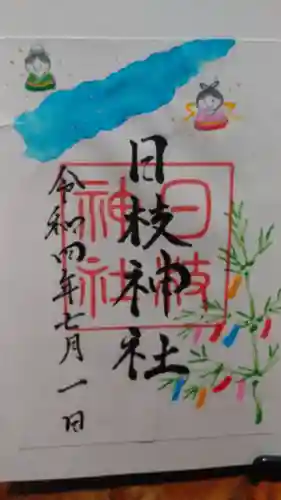 日枝神社
日枝神社
令和四年七月一日